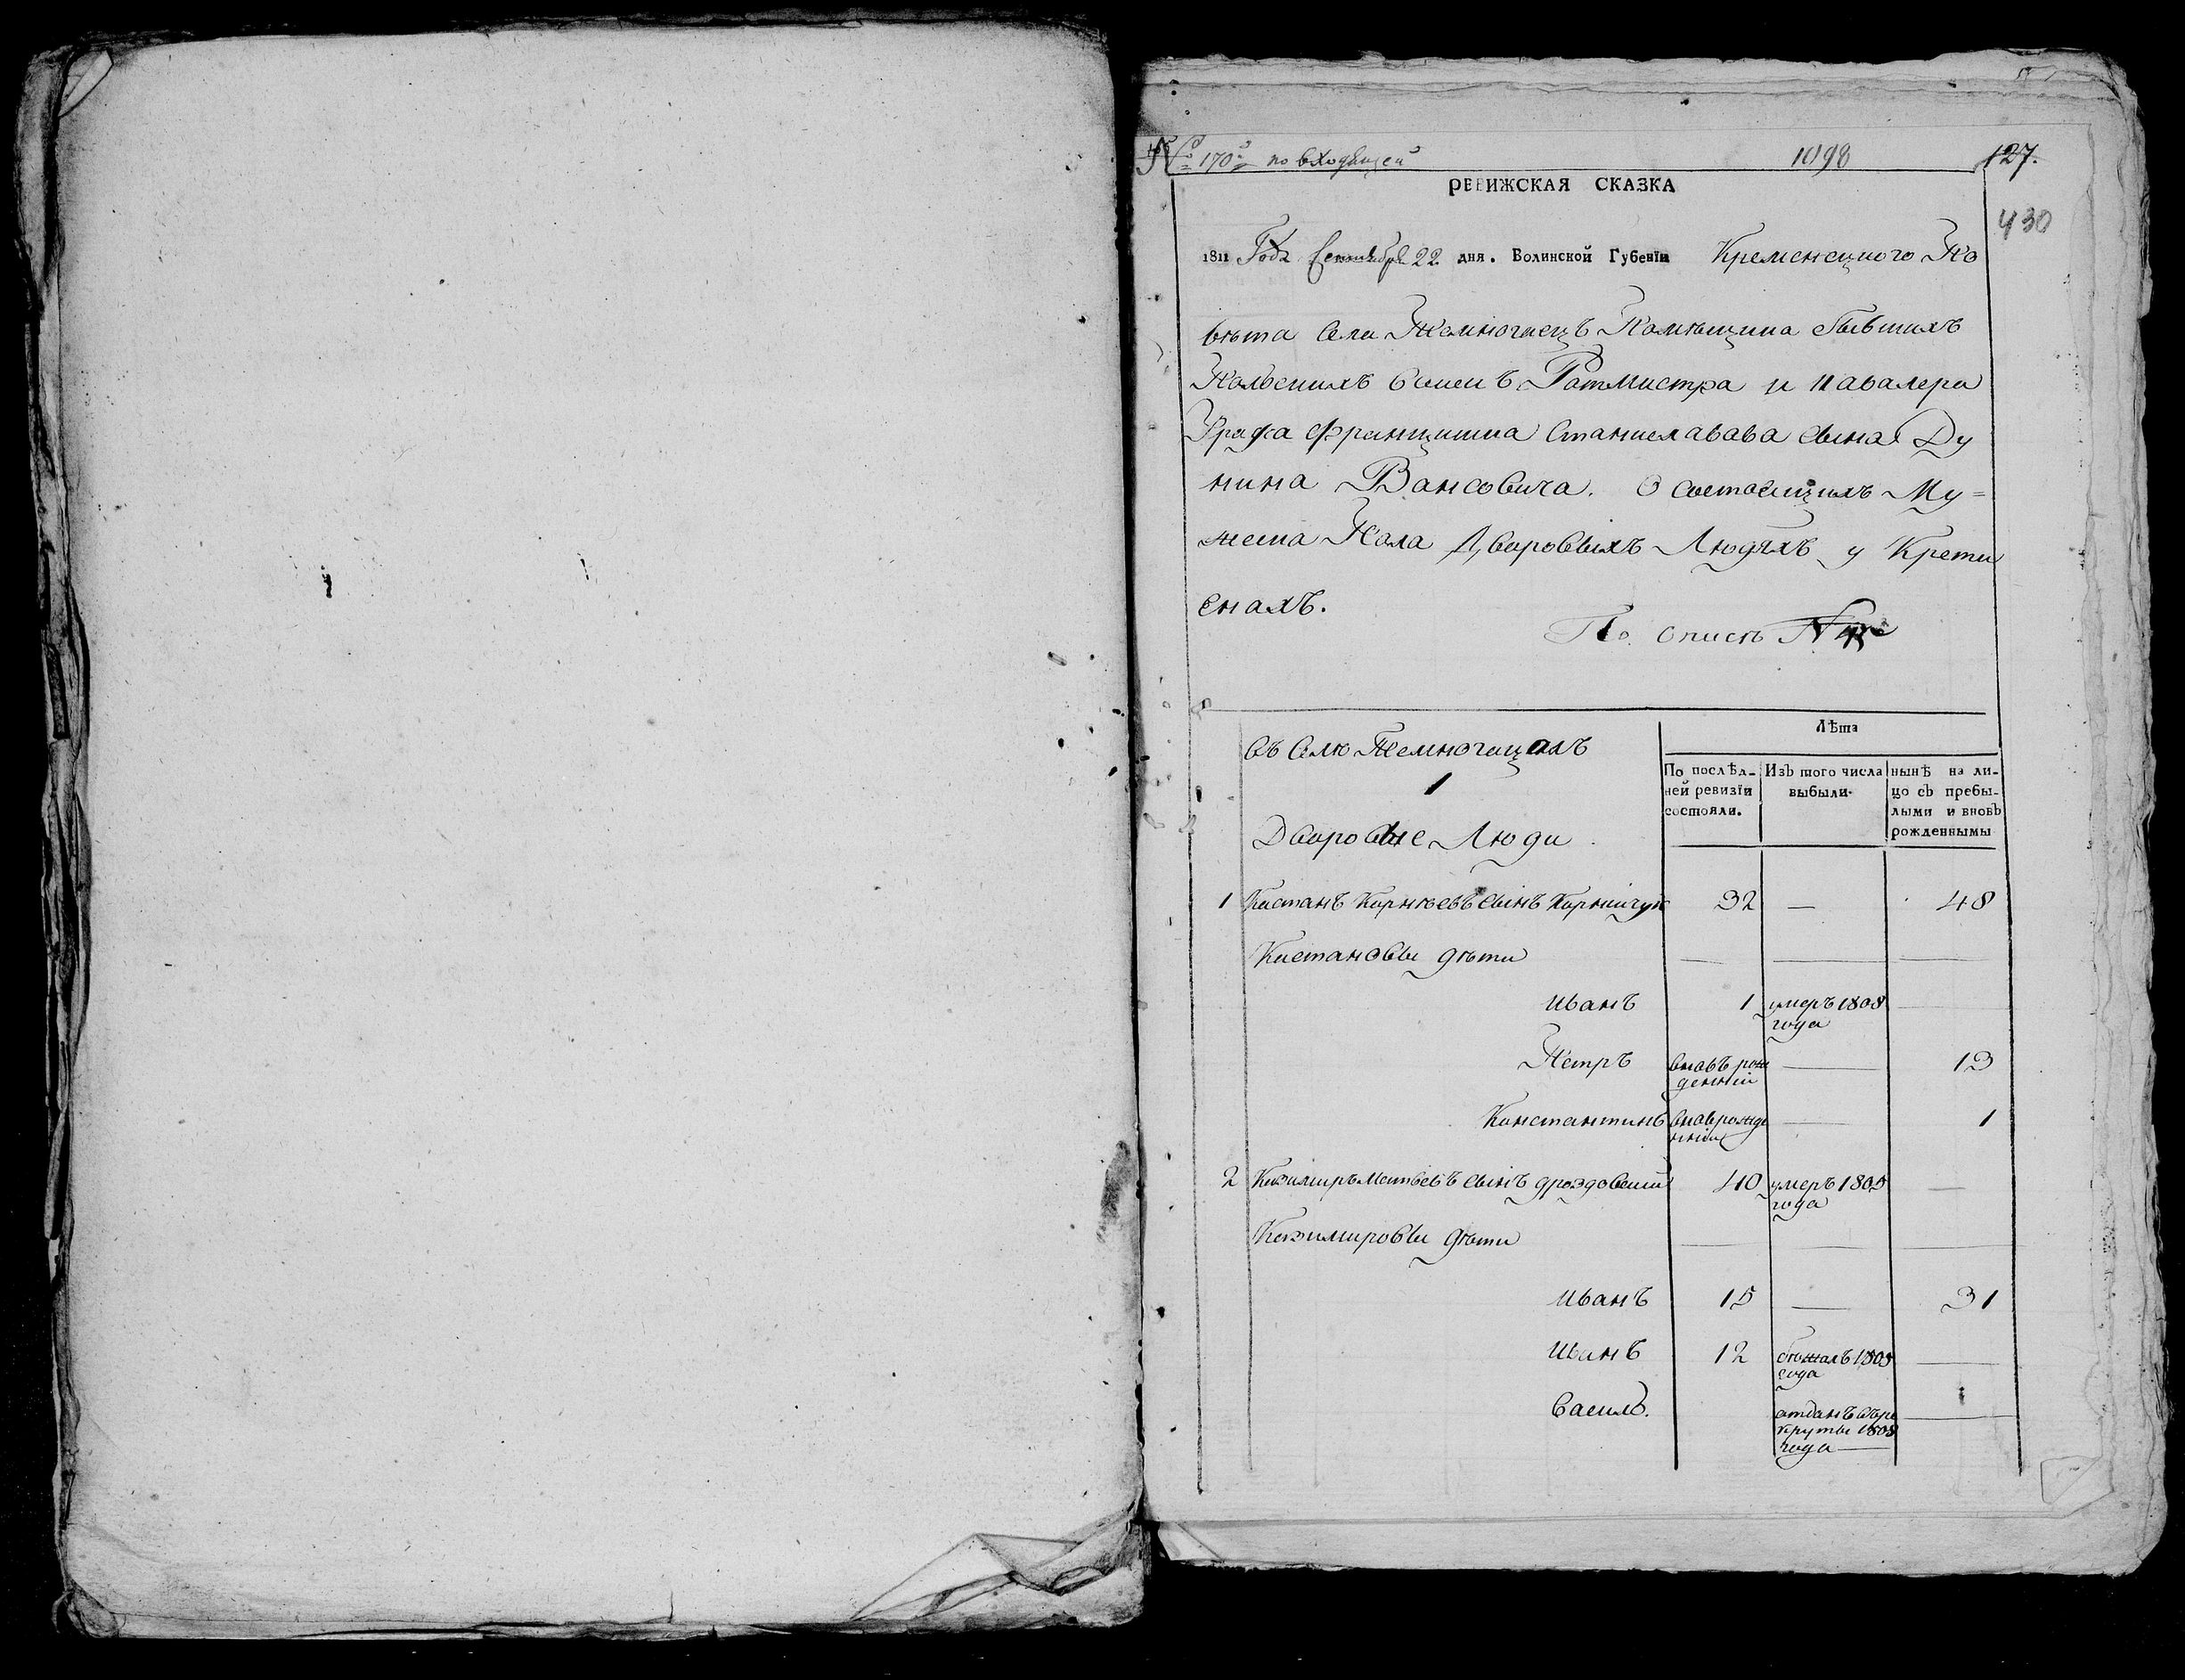 170 по входящей 1098 127.
РЕВИЖСКАЯ СКАЗКА
430
1811 Года Сентября 22 дня. Волинской Губенїи Кременецкого По
вѣта Села Жемногнецъ Помѣщика бывшихъ
Польскихъ Воисъ Ротмистра и Кавалера
Графа Францишка Станиславава сына Ду
нина Вансовича. О состоящихъ Му=
жеска Пола Дворовыхъ Людяхъ у Крети
снахъ.
По Описѣ №
Въ Селѣ
1
Дворовые Люди
Лѣта
По послѣд-
ней ревизїи
состояли.
Изъ того числа
выбыли.
нынѣ на ли-
цо съ пребы-
лыми и вновь
рожденнымы
1 Костанъ Корнѣевъ сынъ Корнийчук 32 — 48
Костановы дѣти
Иванъ 1 умеръ 1808
года
Петръ вновъ рож
денний — 13
Константинъ вновь рожде
нний — 1
2 Казимиръ Матвѣевъ сынъ Дроздовский 40 умеръ 1805
года —
Казимировы дѣти
Иванъ 15 — 31
Иванъ 12 бѣжалъ 1808
года
Василь. отданъ въ ре
круты 1808
года